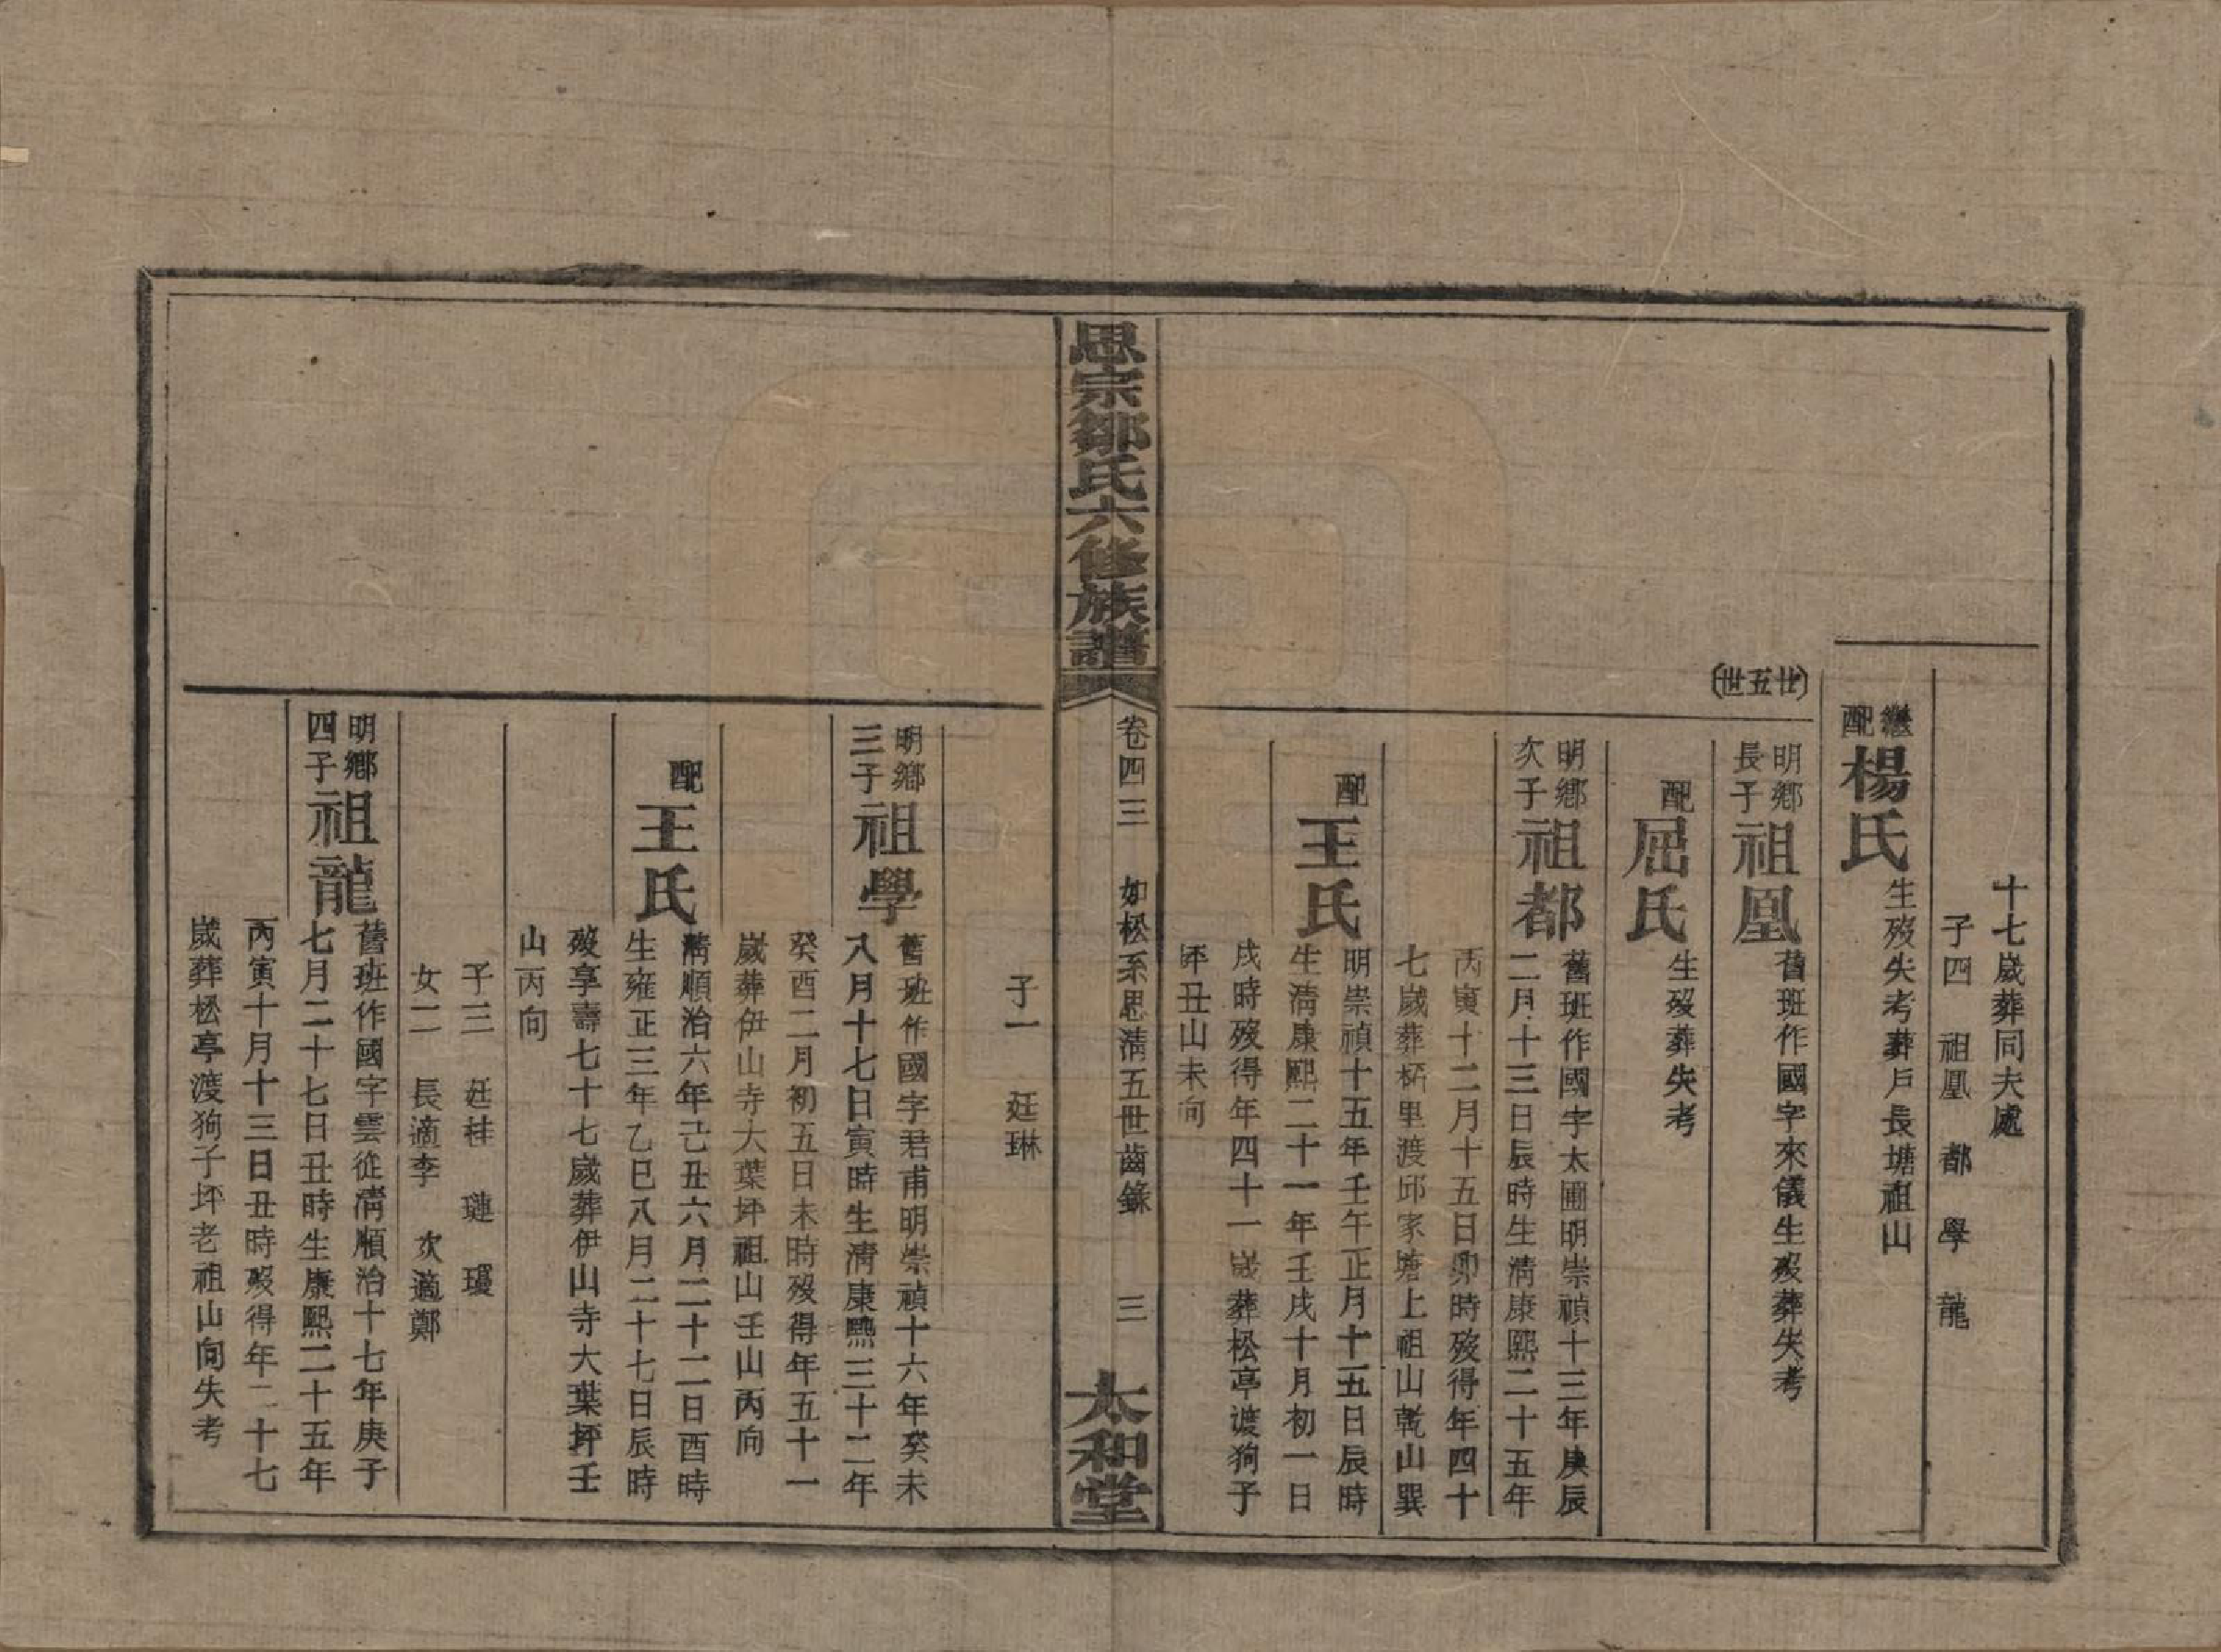 十七歲葬同夫處
子四 祖凰 都 學 龍
繼配楊氏生歿失考葬戶長塘祖山
(廿五世)
明鄉長子祖凰舊班作國字來儀生歿葬失考
配屈氏生歿葬失考
明鄉次子祖都舊班作國字太圃明崇禎十三年庚辰
二月十三日辰時生清康熙二十五年
丙寅十二月十五日卯時歿得年四十
七歲葬柘里渡邱家塘上祖山乾山巽
配王氏明崇禎十五年壬午正月十五日辰時
生清康熙二十一年壬戌十月初一日
戌時歿得年四十一歲葬松亭渡狗子
坪丑山未向
思宗鄒氏六修族譜
卷四三 如松系思清五世齒錄 三
太和堂
子一 廷琳
明鄉三子祖學舊班作國字君甫明崇禎十六年癸未
八月十七日寅時生清康熙三十二年
癸酉二月初五日未時歿得年五十一
歲葬伊山寺大葉坪祖山壬山丙向
配王氏清順治六年己丑六月二十二日酉時
生雍正三年乙巳八月二十七日辰時
歿享壽七十七歲葬伊山寺大葉坪壬
山丙向
子三 廷桂 璉 瓊
女二 長適李 次適鄭
明鄉四子祖龍舊班作國字雲從清順治十七年庚子
七月二十七日丑時生康熙二十五年
丙寅十月十三日丑時歿得年二十七
歲葬松亭渡狗子坪老祖山向失考